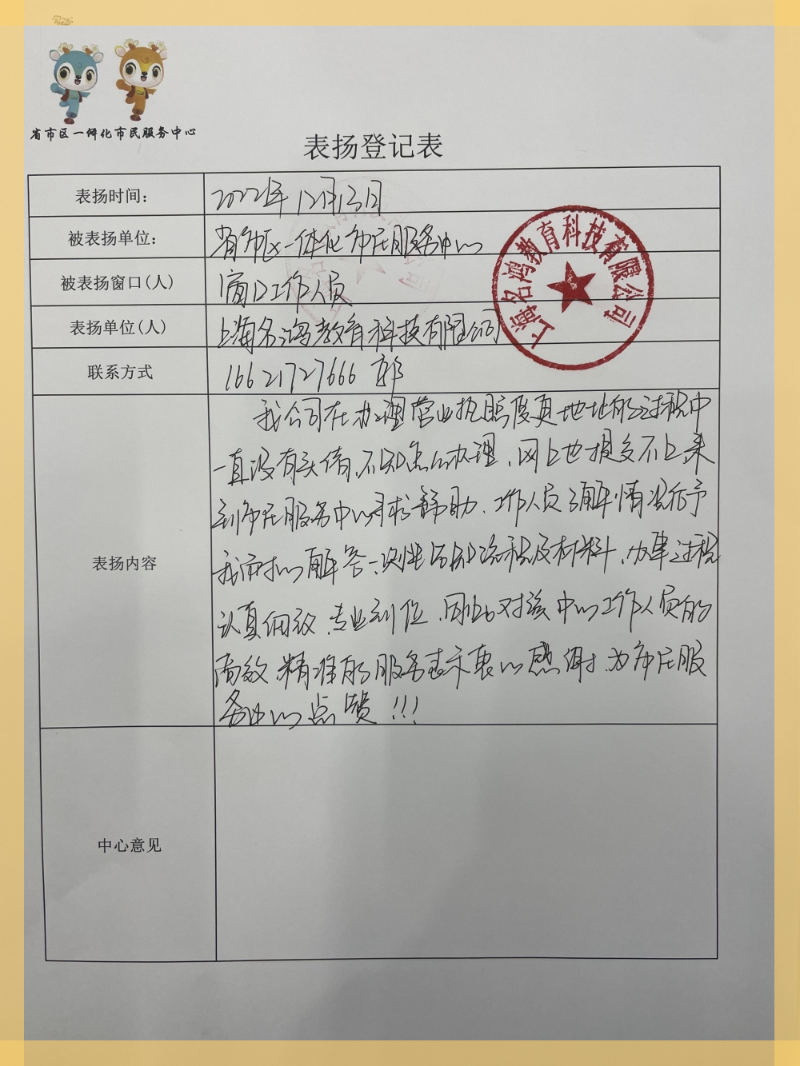 省市区一体化市民服务中心
表扬登记表
表扬时间: 2022年12月13日
被表扬单位: 省市区一体化市民服务中心
被表扬窗口(人) 窗口工作人员
表扬单位(人) 上海名鸿教育科技有限公司
上海名鸿教育科技有限公司
联系方式 16621727666 郭
表扬内容
我公司在办理营业执照变更地址的过程中
一直没有头绪,不知怎么办理,网上也提交不上来
到市民服务中心寻求帮助,工作人员了解情况后给予
我耐心解答一次性告知流程及材料,办事过程
认真细致、专业到位,同时对该中心工作人员的
高效、精准的服务表示衷心感谢,为市民服
务中心点赞!!!
中心意见